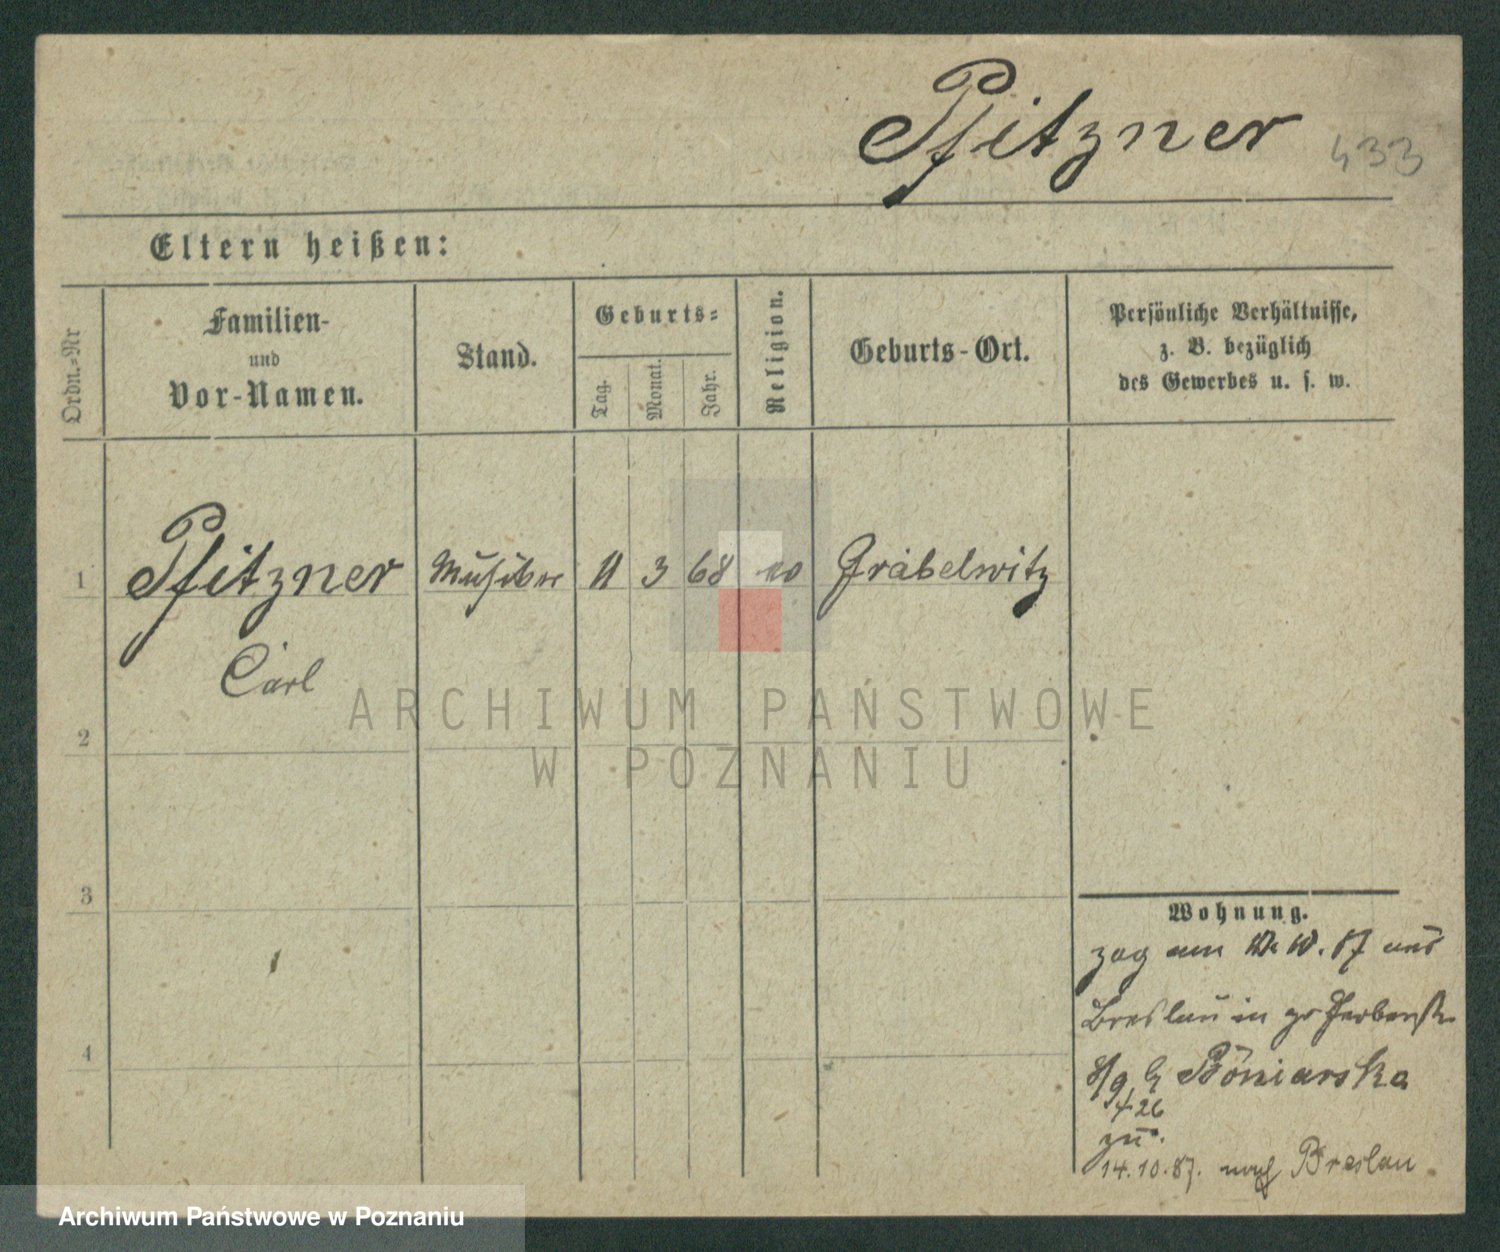 Pfitzner 433
Eltern heißen:
Ordn.-Nr
Familien-
und
Vor-Namen.
Stand.
Geburts-
Tag.
Monat.
Jahr.
Religion.
Geburts-Ort.
Persönliche Verhältnisse,
z. B. bezüglich
des Gewerbes u. s. w.
1 Pfitzner 11 3 68 Gräbelwitz
Carl
2
3
4
Wohnung.
zog am 10. 87 aus
Breslau in gr
zu
14.10.87. nach Breslau
ARCHIWUM PAŃSTWOWE
W POZNANIU
Archiwum Państwowe w Poznaniu